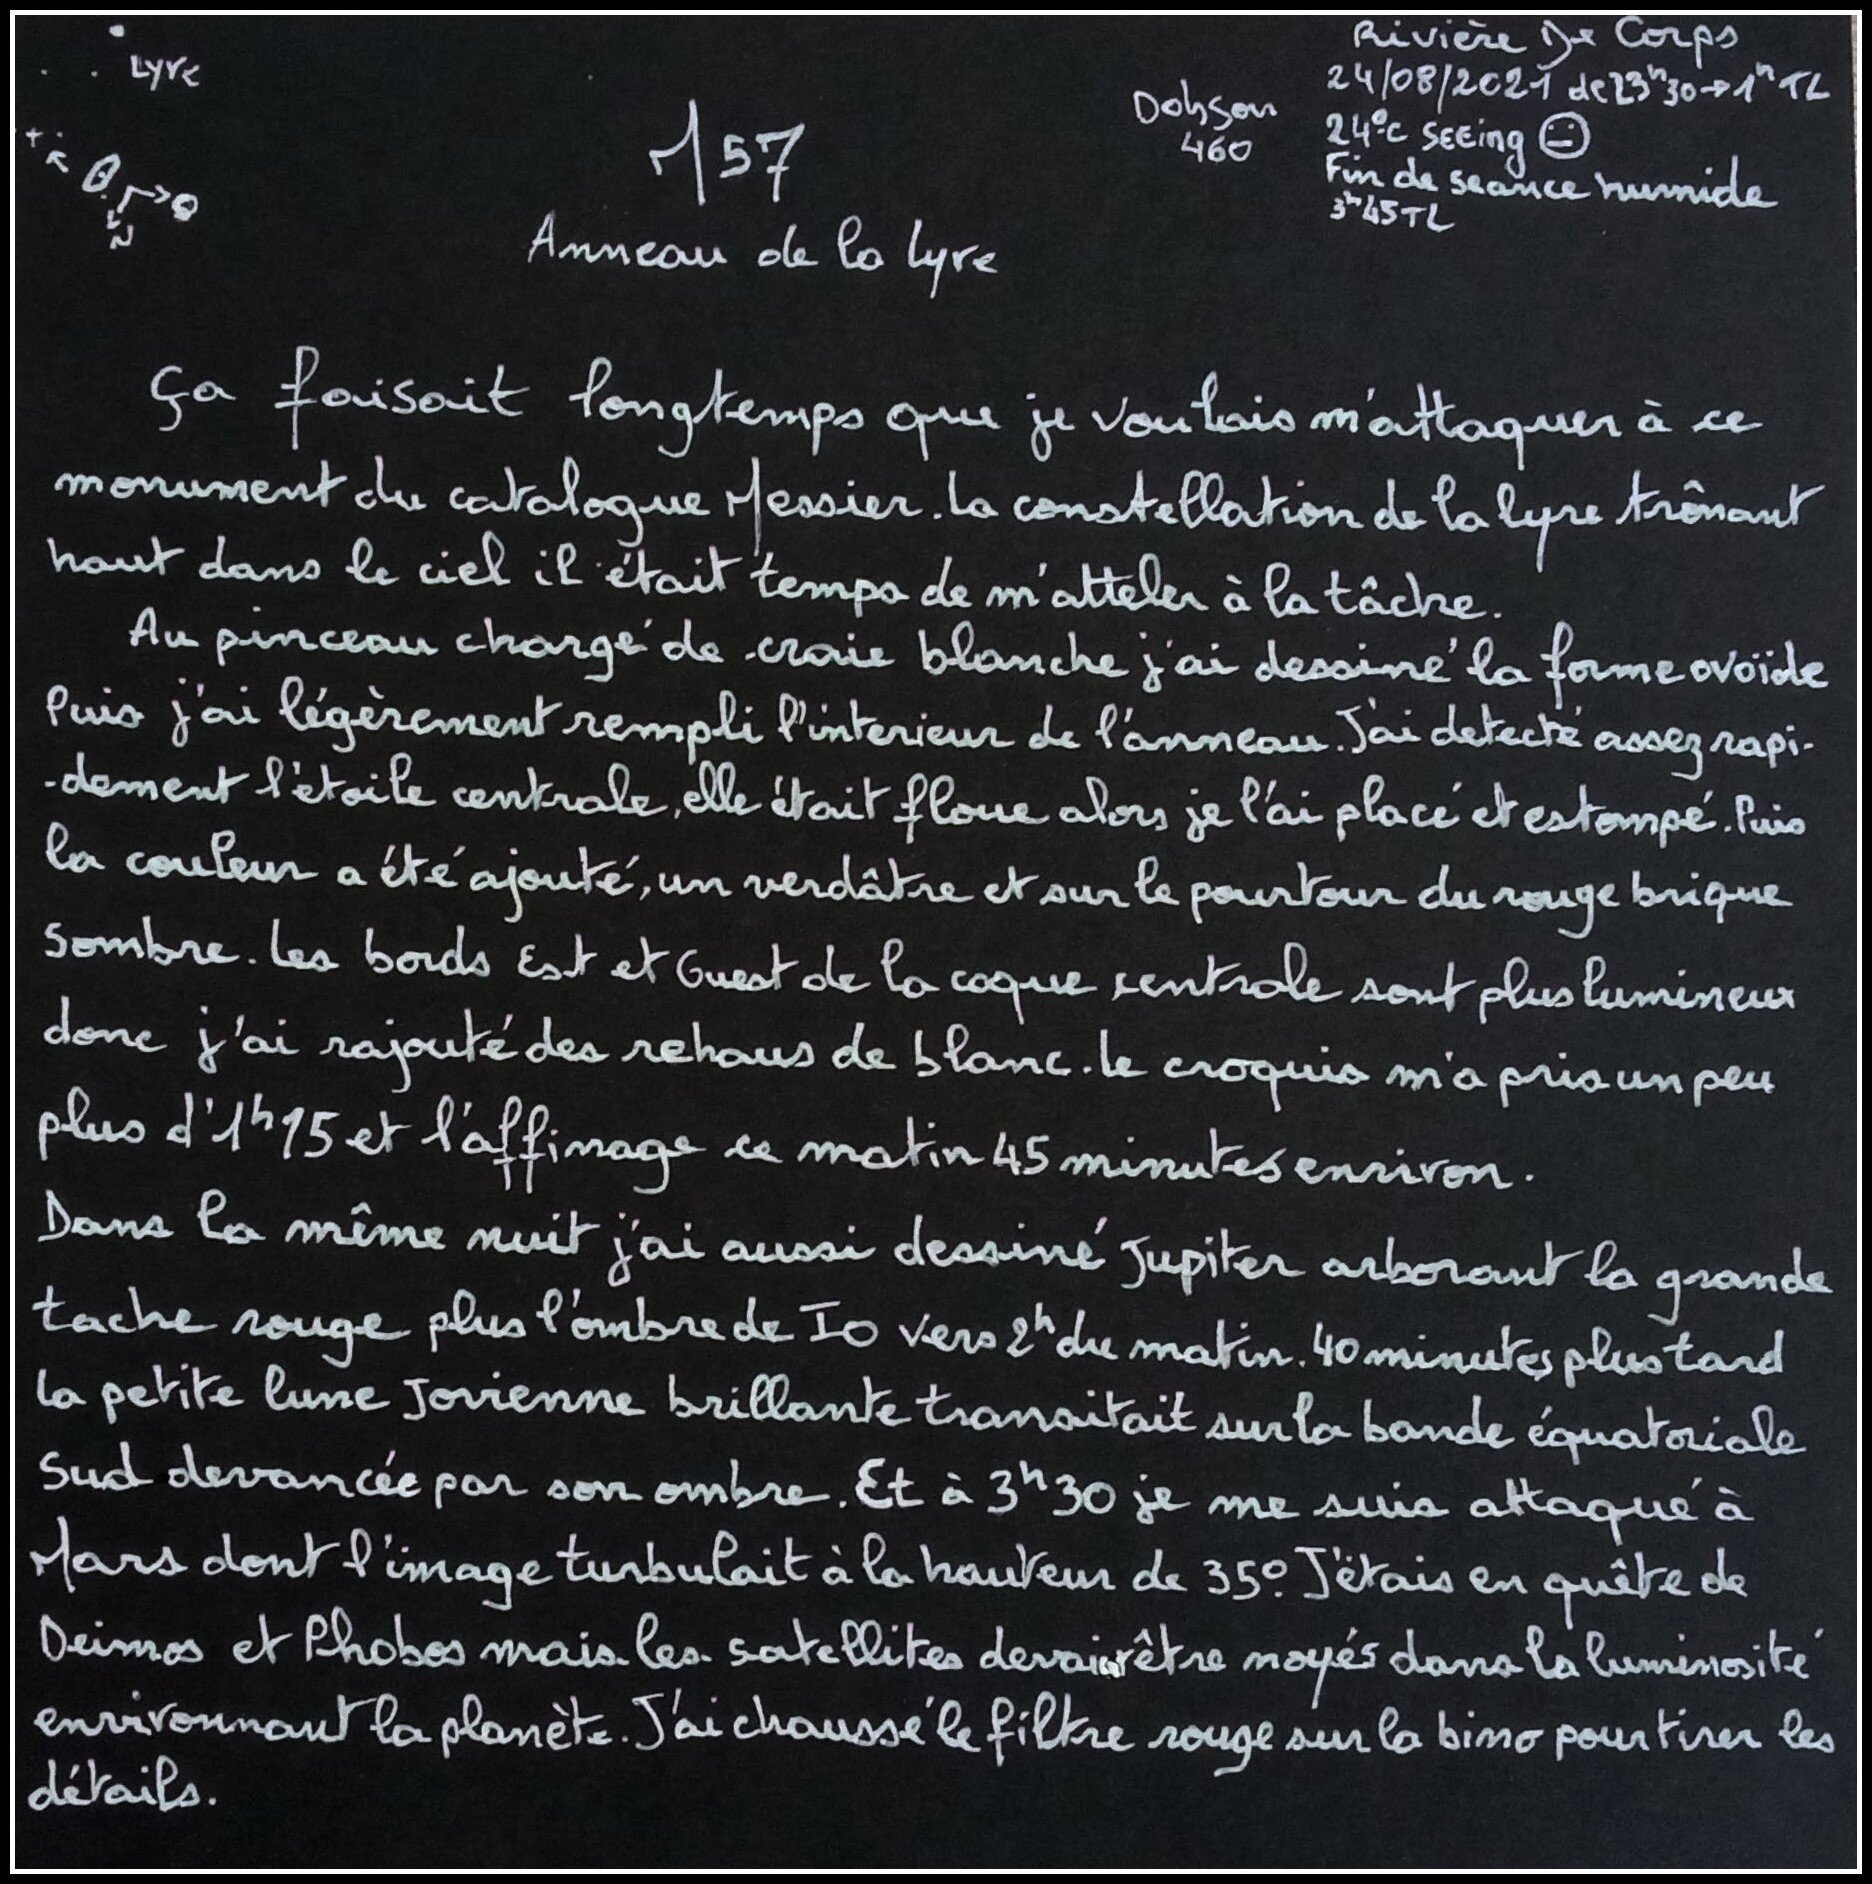 Lyre
N
M57
Anneau de la Lyre
Dobson
460
Rivière De Corps
24/08/2021 de 23h30→1h TL
24°C SEEing
Fin de seance humide
3h45TL
Ça faisait longtemps que je voulais m'attaquer à ce
monument du catalogue Messier. La constellation de la lyre trônant
haut dans le ciel il était temps de m'atteler à la tâche.
Au pinceau chargé de craie blanche j'ai dessiné la forme ovoïde
Puis j'ai légèrement rempli l'interieur de l'anneau. J'ai detecté assez rapi-
-dement l'étoile centrale, elle était floue alors je l'ai placé et estompé. Puis
la couleur a été ajouté, un verdâtre et sur le pourtour du rouge brique
sombre. Les bords Est et Ouest de la coque centrale sont plus lumineux
donc j'ai rajouté des rehaus de blanc. Le croquis m'a pris un peu
plus d'1h15 et l'affinage ce matin 45 minutes environ.
Dans la même nuit j'ai aussi dessiné Jupiter arborant la grande
tache rouge plus l'ombre de Io vers 2h du matin. 40 minutes plus tard
la petite lune Jovienne brillante transitait sur la bande équatoriale
sud devancée par son ombre. Et à 3h30 je me suis attaqué à
Mars dont l'image turbulait à la hauteur de 35°. J'étais en quête de
Deimos et Phobos mais les satellites devaient être noyés dans la luminosité
environnant la planète. J'ai chaussé le filtre rouge sur la bino pour tirer les
détails.